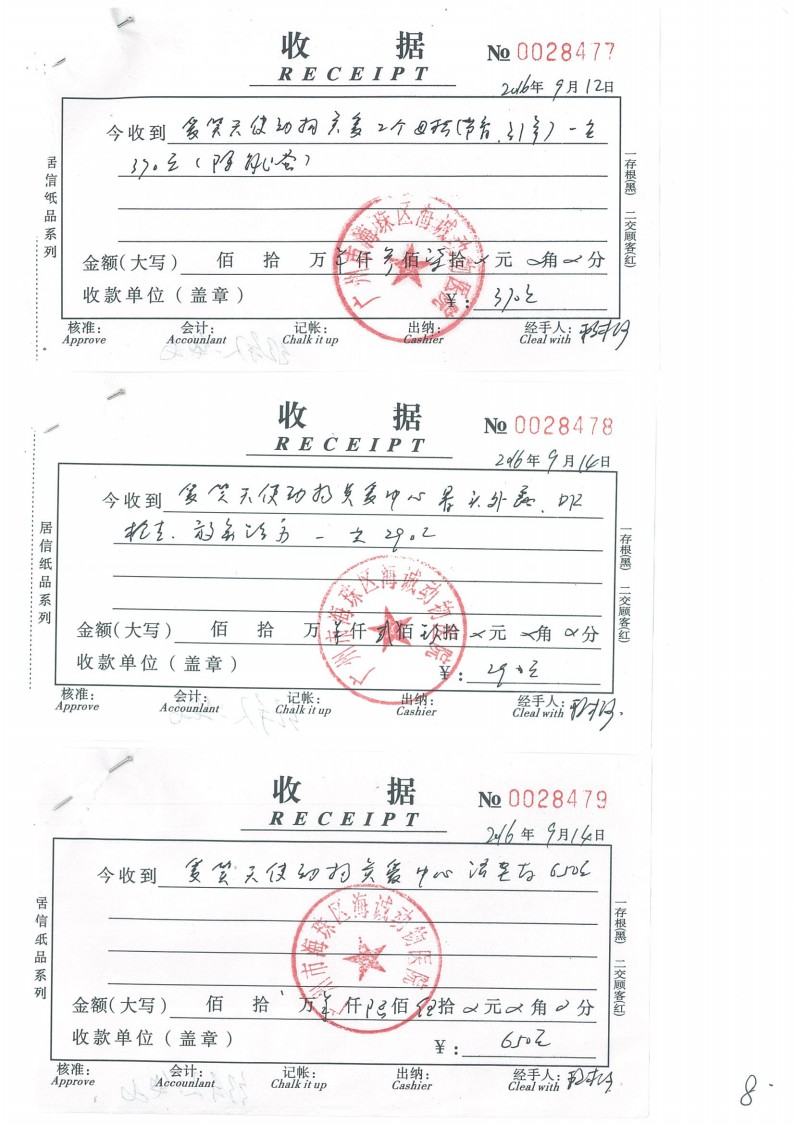 收 据
RECEIPT
№ 0028477
2016年 9月12日
今收到 爱笑天使动物关爱
370元
金额(大写) 佰 拾 万 仟 叁佰 柒拾 元 角 分
收款单位(盖章) ¥: 370元
核准: 会计: 记帐: 出纳: 经手人:
Approve Accountant Chalk it up Cashier Cleal with
居信纸品系列
一存根(黑) 二交顾客(红)
广州市海珠区海诚动物医院
收 据
RECEIPT
№ 0028478
2016年 9月14日
今收到 爱笑天使动物关爱中心 DR
290元
金额(大写) 佰 拾 万 仟 贰佰 玖拾 元 角 分
收款单位(盖章) ¥: 290元
核准: 会计: 记帐: 出纳: 经手人:
Approve Accountant Chalk it up Cashier Cleal with
居信纸品系列
一存根(黑) 二交顾客(红)
广州市海珠区海诚动物医院
收 据
RECEIPT
№ 0028479
2016年 9月14日
今收到 爱笑天使动物关爱中心 650元
金额(大写) 佰 拾 万 仟 陆佰 伍拾 元 角 分
收款单位(盖章) ¥: 650元
核准: 会计: 记帐: 出纳: 经手人:
Approve Accountant Chalk it up Cashier Cleal with
居信纸品系列
一存根(黑) 二交顾客(红)
广州市海珠区海诚动物医院
8